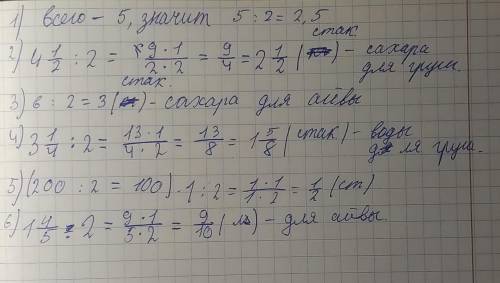 1) всего - 5, значит 5 : 2 = 2,5
стак.
2) 4 1/2 : 2 = 9 · 1 / 2 · 2 = 9/4 = 2 1/2 ( ) - сахара
для груш.
стак.
3) 6 : 2 = 3 ( ) - сахара для айвы
4) 3 1/4 : 2 = 13 · 1 / 4 · 2 = 13/8 = 1 5/8 (стак) - воды
для груш.
5) (200 : 2 = 100) · 1 : 2 = 1 · 1 / 1 · 2 = 1/2 (ст)
6) 1 4/5 : 2 = 9 · 1 / 5 · 2 = 9/10 ( ) - для айвы.